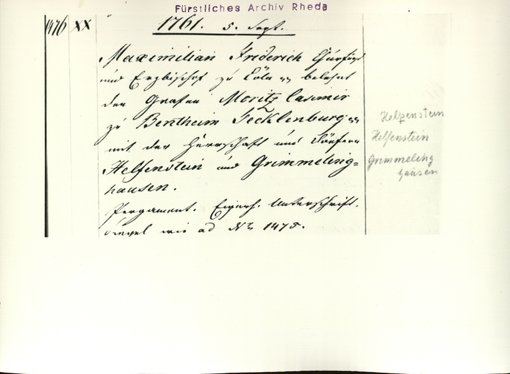 Fürstliches Archiv Rheda
1476 XX
1761. 5. Sept.
Maximilian Friderich Churfürst
und Erzbischof zu Cöln belehnt
den Grafen Moritz Casimir
zu Bentheim Tecklenburg
mit der Herrschaft und Häusern
Helfenstein und Grimmeling=
hausen.
Pergament. Eigenh. Unterschrift.
wie ad No 1475.
Helpenstein
Helfenstein
Grimmeling
hausen